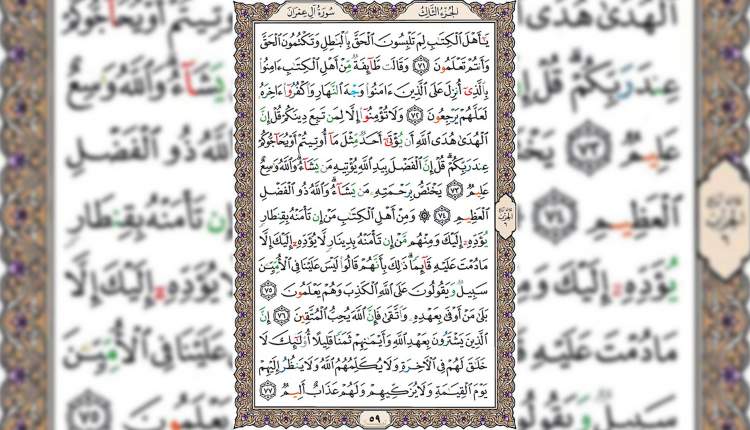 سُورَةُ آلِ عِمْرَانَ
الجُزْءُ الثَّالِثُ
يَٰٓأَهْلَ ٱلْكِتَٰبِ لِمَ تَلْبِسُونَ ٱلْحَقَّ بِٱلْبَٰطِلِ وَتَكْتُمُونَ ٱلْحَقَّ
وَأَنتُمْ تَعْلَمُونَ ٧١ وَقَالَت طَّآئِفَةٌ مِّنْ أَهْلِ ٱلْكِتَٰبِ ءَامِنُوا۟
بِٱلَّذِىٓ أُنزِلَ عَلَى ٱلَّذِينَ ءَامَنُوا۟ وَجْهَ ٱلنَّهَارِ وَٱكْفُرُوٓا۟ ءَاخِرَهُۥ
لَعَلَّهُمْ يَرْجِعُونَ ٧٢ وَلَا تُؤْمِنُوٓا۟ إِلَّا لِمَن تَبِعَ دِينَكُمْ قُلْ إِنَّ
ٱلْهُدَىٰ هُدَى ٱللَّهِ أَن يُؤْتَىٰٓ أَحَدٌ مِّثْلَ مَآ أُوتِيتُمْ أَوْ يُحَآجُّوكُمْ
عِندَ رَبِّكُمْ ۗ قُلْ إِنَّ ٱلْفَضْلَ بِيَدِ ٱللَّهِ يُؤْتِيهِ مَن يَشَآءُ ۗ وَٱللَّهُ وَٰسِعٌ
عَلِيمٌ ٧٣ يَخْتَصُّ بِرَحْمَتِهِۦ مَن يَشَآءُ ۗ وَٱللَّهُ ذُو ٱلْفَضْلِ
ٱلْعَظِيمِ ٧٤ ۞ وَمِنْ أَهْلِ ٱلْكِتَٰبِ مَنْ إِن تَأْمَنْهُ بِقِنطَارٍ
يُؤَدِّهِۦٓ إِلَيْكَ وَمِنْهُم مَّنْ إِن تَأْمَنْهُ بِدِينَارٍ لَّا يُؤَدِّهِۦٓ إِلَيْكَ إِلَّا
مَا دُمْتَ عَلَيْهِ قَآئِمًا ۗ ذَٰلِكَ بِأَنَّهُمْ قَالُوا۟ لَيْسَ عَلَيْنَا فِى ٱلْأُمِّيِّـۧنَ
سَبِيلٌ وَيَقُولُونَ عَلَى ٱللَّهِ ٱلْكَذِبَ وَهُمْ يَعْلَمُونَ ٧٥
بَلَىٰ مَنْ أَوْفَىٰ بِعَهْدِهِۦ وَٱتَّقَىٰ فَإِنَّ ٱللَّهَ يُحِبُّ ٱلْمُتَّقِينَ ٧٦ إِنَّ
ٱلَّذِينَ يَشْتَرُونَ بِعَهْدِ ٱللَّهِ وَأَيْمَٰنِهِمْ ثَمَنًا قَلِيلًا أُو۟لَٰٓئِكَ لَا
خَلَٰقَ لَهُمْ فِى ٱلْءَاخِرَةِ وَلَا يُكَلِّمُهُمُ ٱللَّهُ وَلَا يَنظُرُ إِلَيْهِمْ
يَوْمَ ٱلْقِيَٰمَةِ وَلَا يُزَكِّيهِمْ وَلَهُمْ عَذَابٌ أَلِيمٌ ٧٧
٥٩